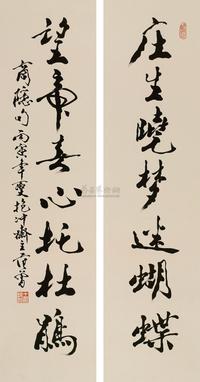 庄生曉梦迷蝴蝶
望帝春心托杜鹃
商隐句丙寅年夏抱冲斋主范曾